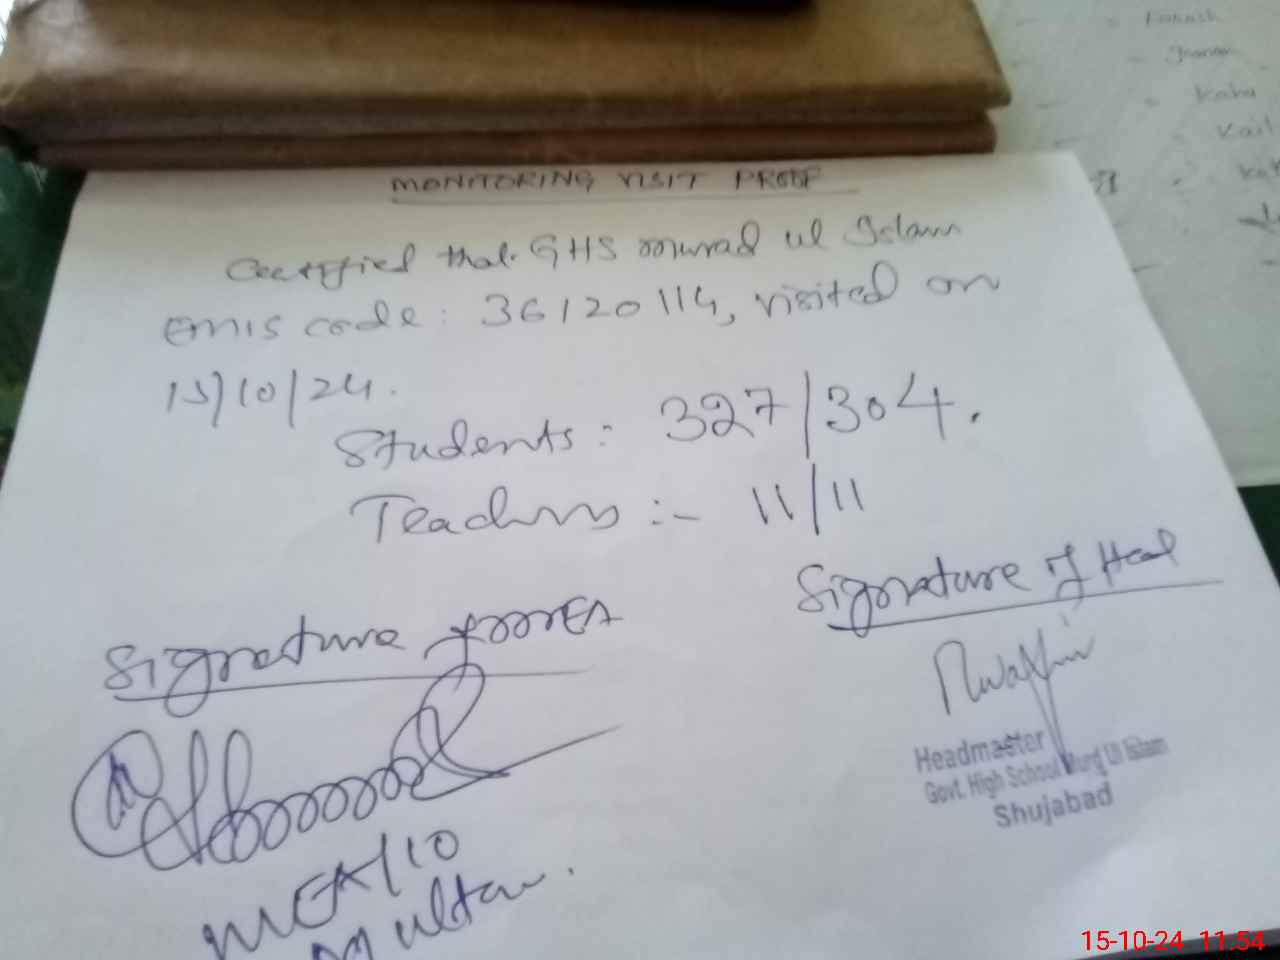 MONITORING VISIT PROOF
Certified that GHS murad ul Islam
EMIS code: 36120114, visited on
15/10/24.
Students: 327/304.
Teachers :- 11/11
Signature of MEA
Signature of Head
Headmaster
Govt. High School Murd Ul Islam
Shujabad
MEA/10
Multan.
Kaha
Kail
15-10-24 11:54